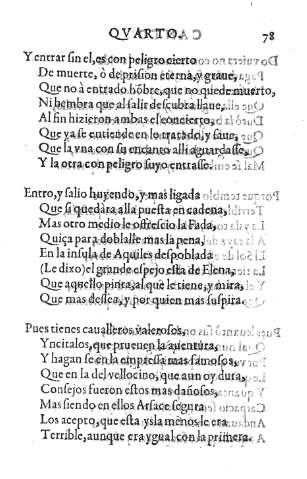 QVARTO. 78
Y entrar sin el, es con peligro cierto
De muerte, ò de prision eterna, y graue,
Que no à entrado hõbre, que no quede muerto,
Ni hembra que al salir descubra llaue,
Al fin hizieron ambas el concierto,
Que ya se entiende en lo tratado, y saue,
Que la vna con su encanto alli aguardasse,
Y la otra con peligro suyo entrasse.
Entro, y salio huyendo, y mas ligada
Que si quedara alla puesta en cadena,
Mas otro medio le ofrescio la Fada,
Quiça para doblalle mas la pena,
En la insula de Aquiles despoblada
(Le dixo) el grande espejo esta de Elena,
Que aquello pinta, al que le tiene, y mira,
Que mas dessea, y por quien mas suspira.
Pues tienes caualleros valerosos,
Yncitalos, que prueuen la auentura,
Y hagan se en la empressa mas famosos,
Que en la del vellocino, que aun oy dura,
Consejos fueron estos mas dañosos,
Mas siendo en ellos Arsace segura
Los acepto, que esta ysla menos le era
Terrible, aunque era ygual con la primera.